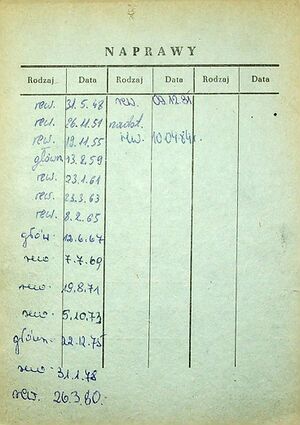 NAPRAWY
Rodzaj Data Rodzaj Data Rodzaj Data
rew. 31.5.48 rew. 09.12.81
rew. 26.11.51
rew. 19.11.55 rew. 10.04.84r.
główn. 13.8.59
rew. 23.1.61
rew. 23.3.63
rew. 8.2.65
główn. 12.6.67
rew 7.7.69
rew 19.8.71
rew. 5.10.73
główn. 22.12.75
rew 31.1.78
rew. 26.3.80.